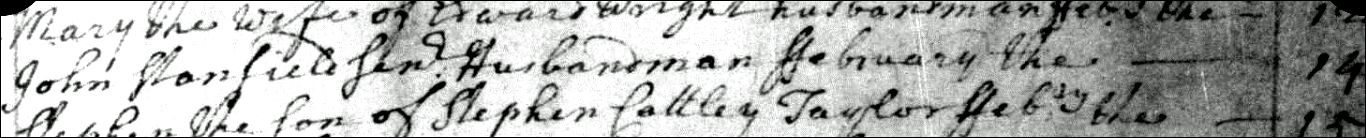 Mary the Wyfe of Edward Wright husbandman ffeb: the 12
John Stanfield Senr. Husbandman ffebruary the 14
Stephen the Son of Stephen Cattley Taylor ffebry the 15